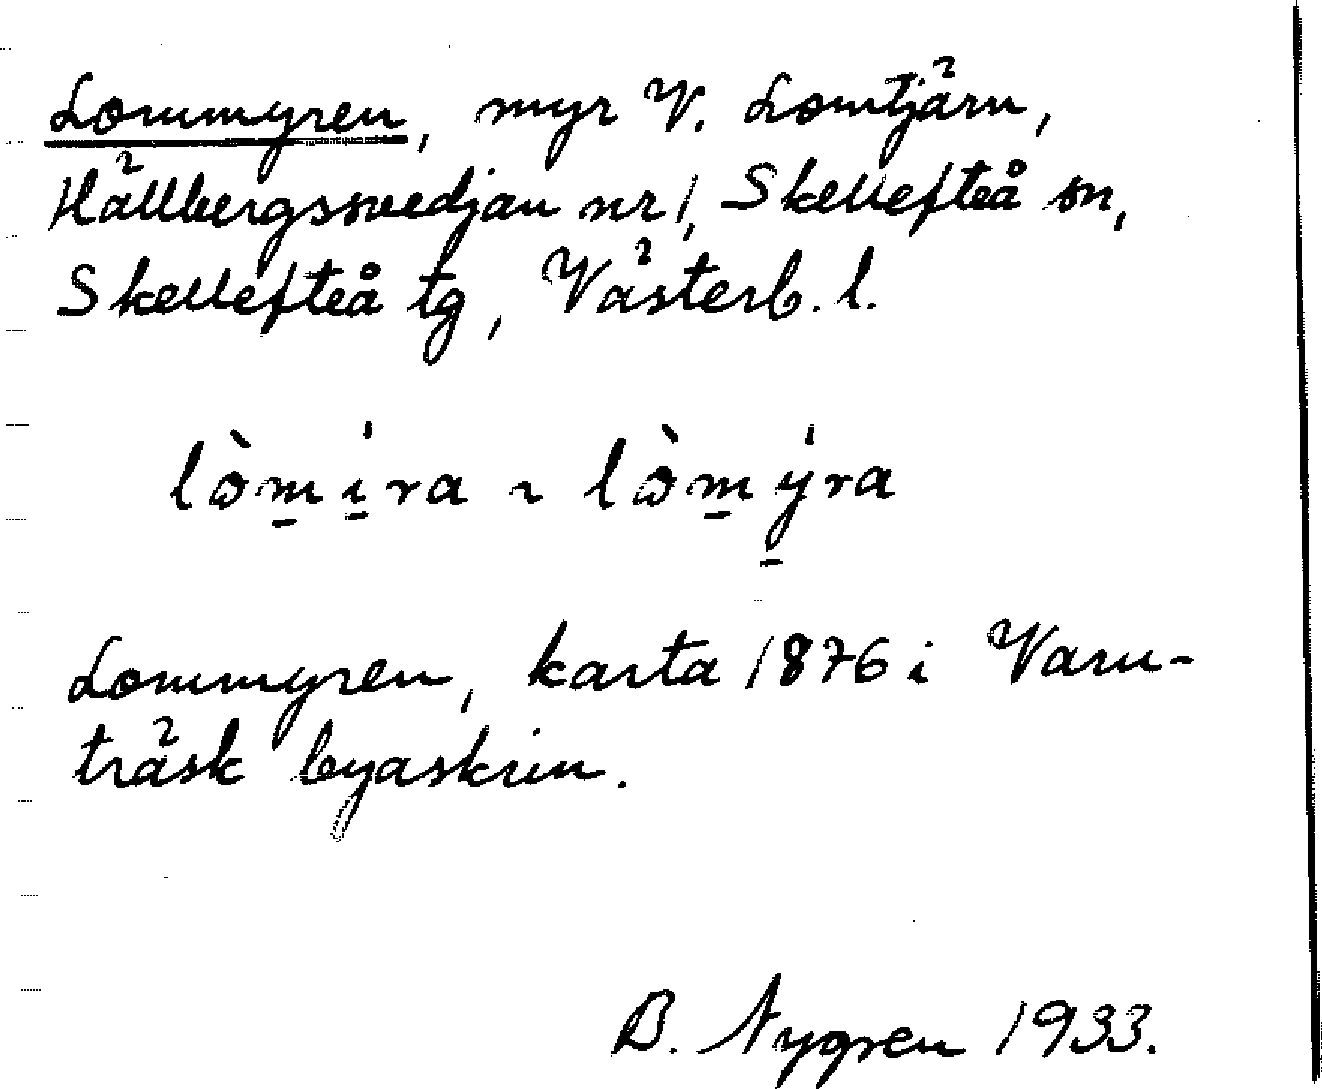 Lommyren, myr V. Lomtjärn,
Hällbergssvedjan nr 1, Skellefteå sn,
Skellefteå tg, Västerb. l.
lòm̠i̠ra ~ lòm̠y̠ra
Lommyren, karta 1876 i Varu-
träsk byaskrin.
B. Nygren 1933.